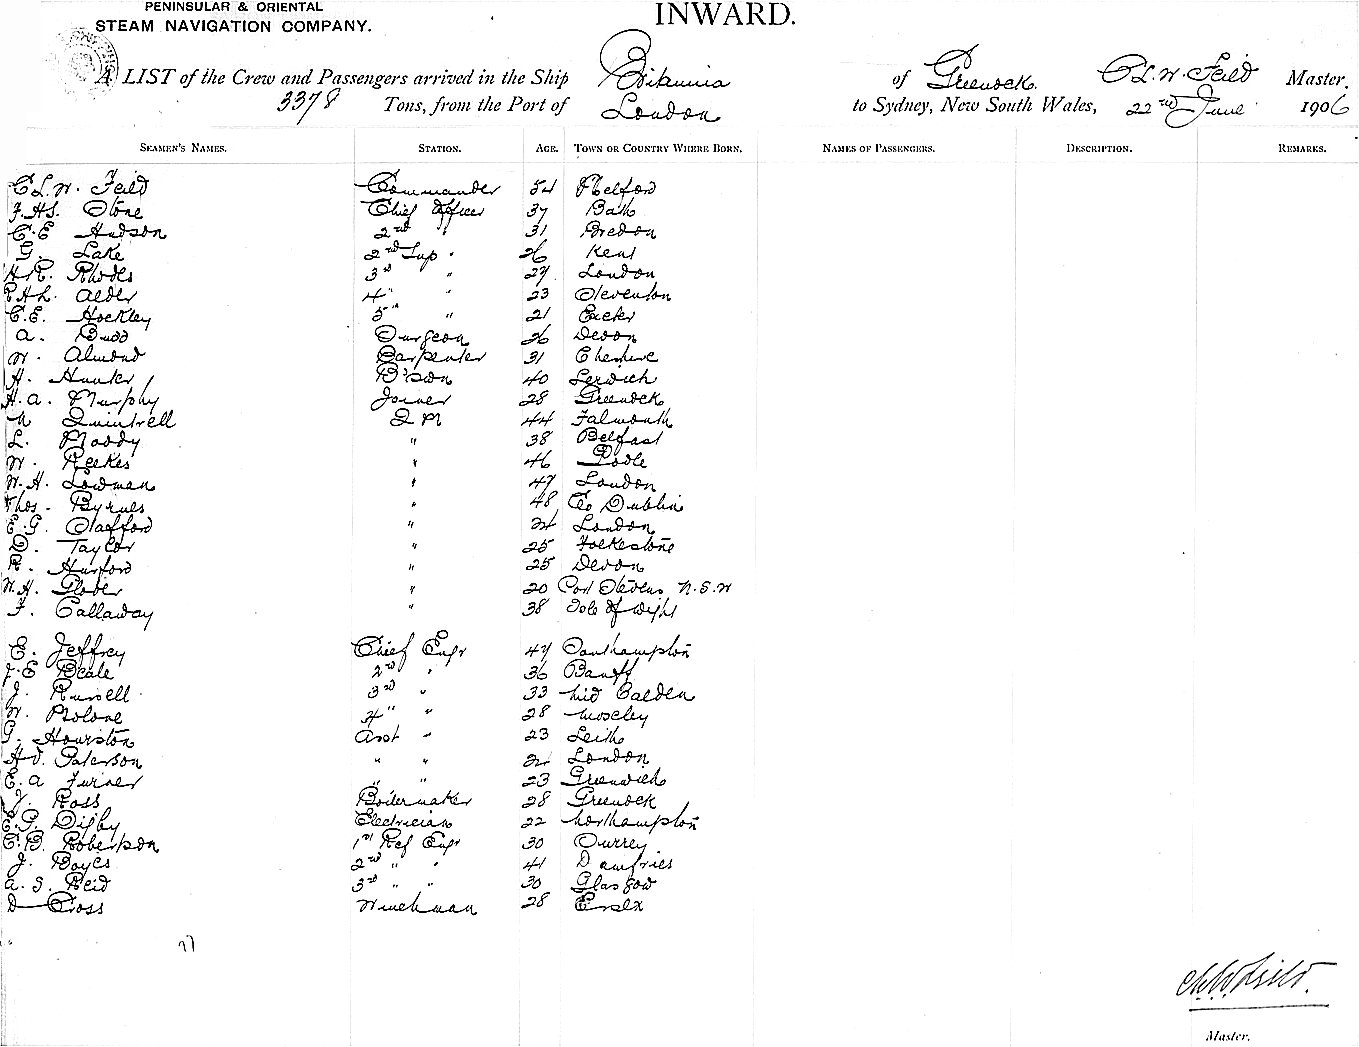 PENINSULAR & ORIENTAL
STEAM NAVIGATION COMPANY.
INWARD.
A LIST of the Crew and Passengers arrived in the Ship Britannia of Greenock. C L. W. Field Master,
3378 Tons, from the Port of London to Sydney, New South Wales, 22nd June 1906
SEAMEN'S NAMES. STATION. AGE. TOWN OR COUNTRY WHERE BORN. NAMES OF PASSENGERS. DESCRIPTION. REMARKS.
C L. W. Field Commander 54
F. H.S. Stone Chief Officer 37 Bath
C. E Hudson 2nd " 31 Bredon
G. Lake 2nd Sup " 26 Kent
H. R. Rhodes 3rd " 27 London
H. L. Alder 4th " 23 Stevenston
C. E. Hockley 5th " 21 Exeter
A. Budd Surgeon 26 Devon
W. Almond Carpenter 31 Cheshire
H. Hunter B'son 40 Lerwick
H. A. Murphy Joiner 28 Greenock
Quintrell Q M 44 Falmouth
L. Moody " 38 Belfast
W. Reekes " 46 Poole
W. H. Lodman " 47 London
Thos. Byrnes " 48 Co Dublin
E. G. Stafford " 24 London
D. Taylor " 25 Folkestone
R. Hurford " 25 Devon
W. H. Glover " 20 Port Stevens N.S.W
F. Callaway " 38 Isle of Wight
E. Jeffrey Chief Engr 47 Southampton
J. E Beale 2nd " 36 Banff
J. Russell 3rd " 33 Mid Calder
W. 4th " 28 Moseley
G. Hourston Asst " 23 Leith
Paterson " " 24 London
E. A Turner " " 23 Greenwich
J. Ross Boilermaker 28 Greenock
E. G. Digby Electrician 22 Northampton
C. B. Robertson 1st Ref Engr 30 Surrey
J. Boyes 2nd " " 41 Dumfries
A. S. Reid 3rd " " 30 Glasgow
D Cross Winchman 28 Essex
C.L.W. Field.
Master.